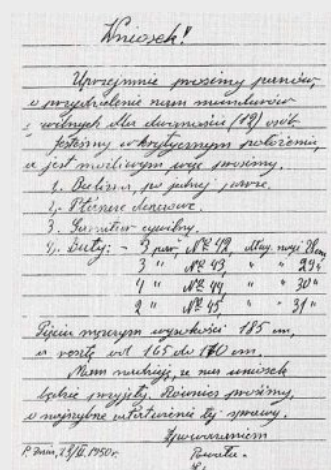 Wniosek!
Uprzejmie prosimy panów,
o przydzielenie nam mundurów
i wolnych dla dwunastu (12) osób
Jesteśmy w krytycznym położeniu,
a jest możliwym, więc prosimy.
1. Bielizna, po jednej parze.
2. Płaszcze deszczowe.
3. Garnitur cywilny.
4. Buty: - 3 par, № 42, dług. nogi 28 cm
3 " № 43, " " 29 "
4 " № 44, " " 30 "
2 " № 45, " " 31 "
Pięciu mężczyzn wysokości 185 cm,
a resztę od 165 do 170 cm.
Mam nadzieję, że nas wniosek
będzie przyjęty. Również prosimy,
o najszybsze załatwienie tej sprawy.
Z poważaniem
1950r.